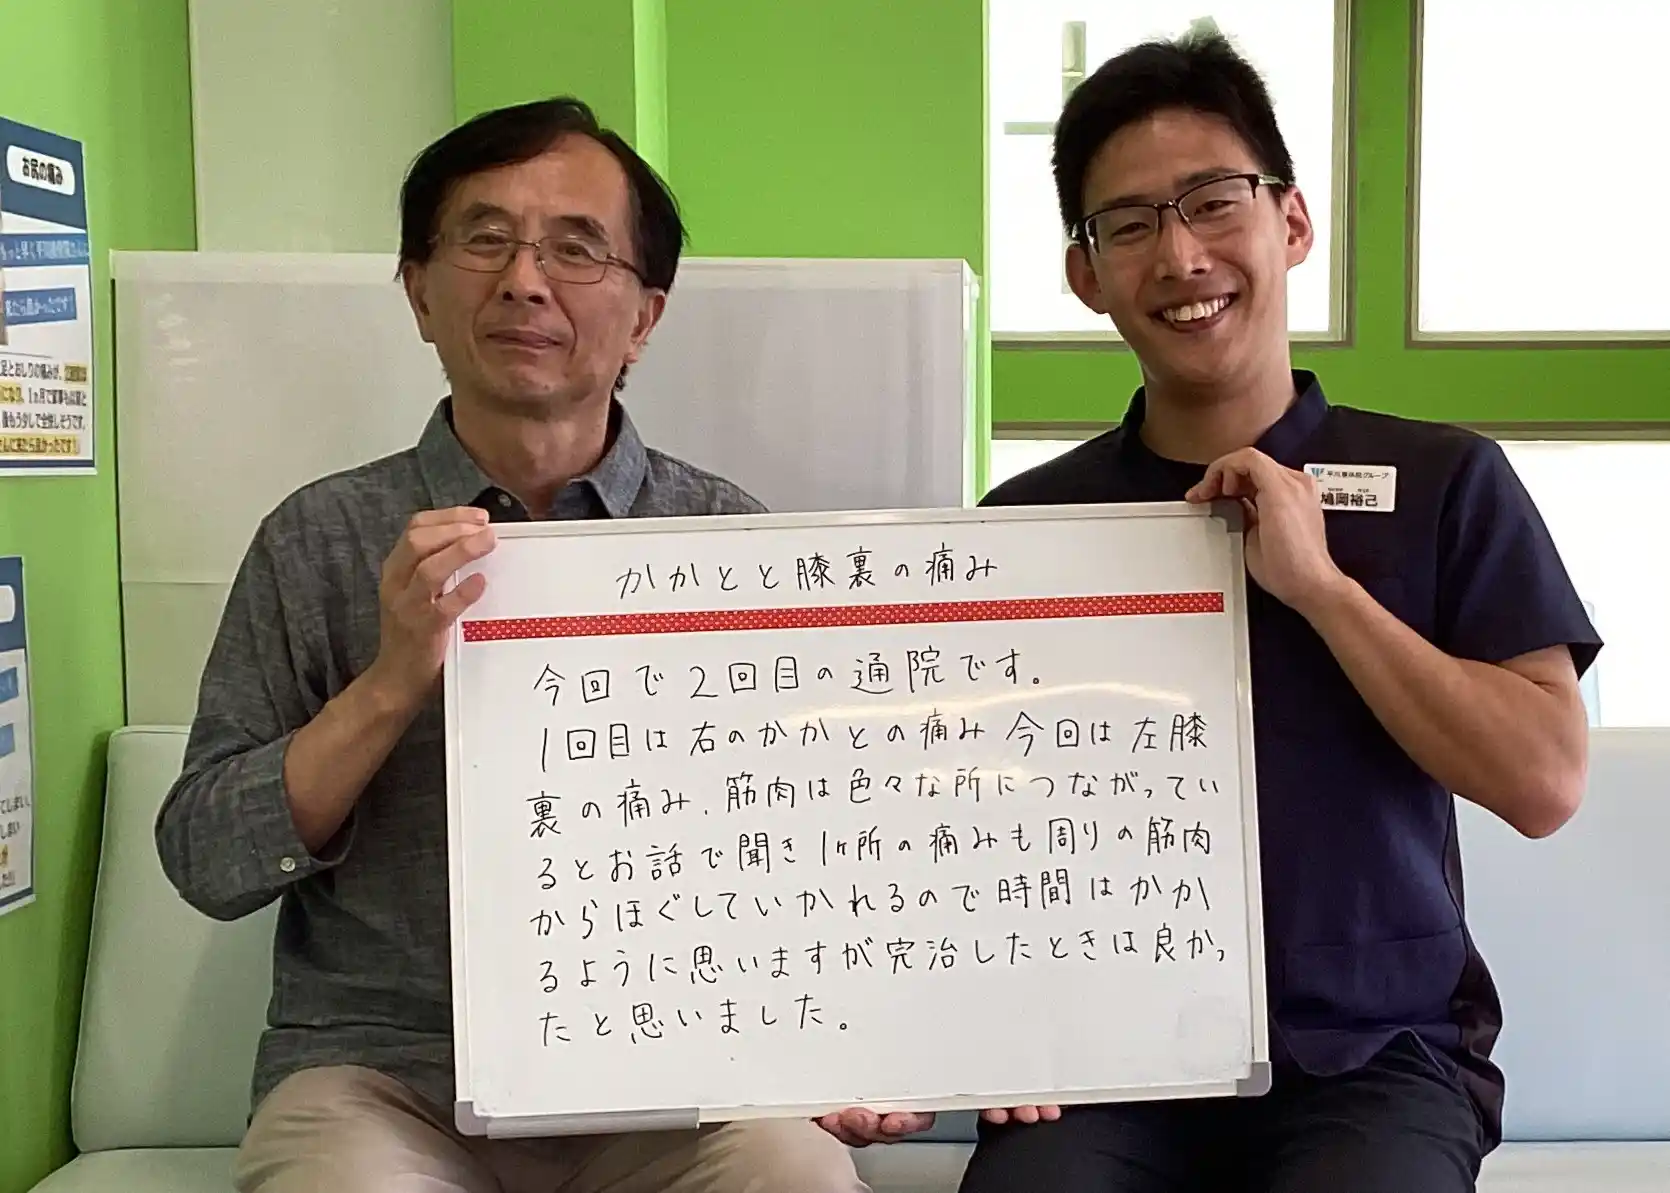 お尻の痛み
来たら良かったです!
かかとと膝裏の痛み
今回で2回目の通院です。
1回目は右のかかとの痛み今回は左膝
裏の痛み、筋肉は色々な所につながってい
るとお話で聞き1ヶ所の痛みも周りの筋肉
からほぐしていかれるので時間はかか
るように思いますが完治したときは良かっ
たと思いました。